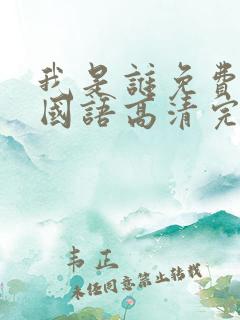 我是誰免費
國語高清完
韦正
未经同意禁止转载